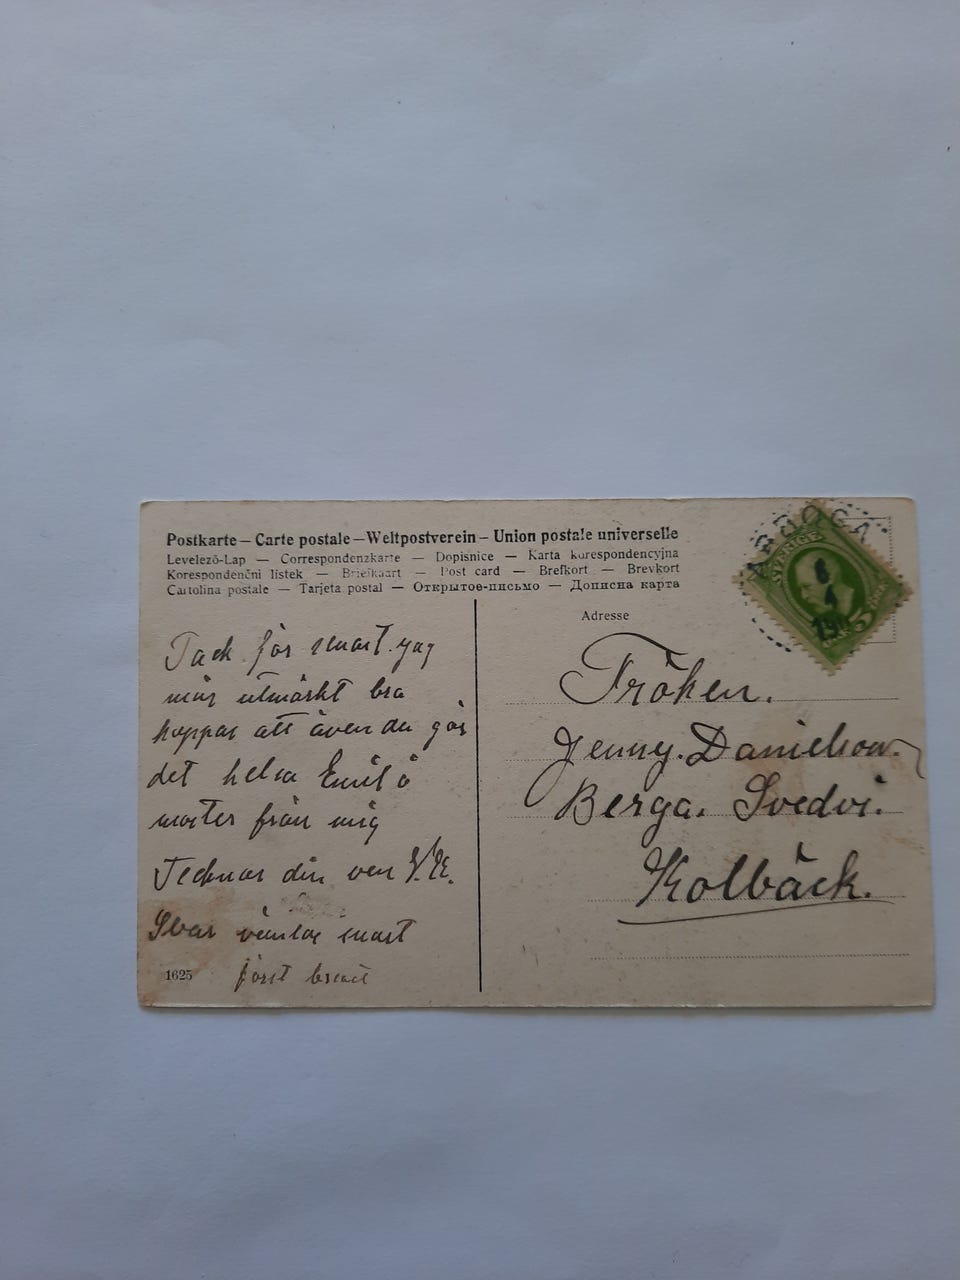 Postkarte – Carte postale – Weltpostverein – Union postale universelle
Levelező-Lap — Correspondenzkarte — Dopisnice — Karta korespondencyjna
Korespondenčni lístek — Briefkaart — Post card — Brefkort — Brevkort
Cartolina postale — Tarjeta postal — Открытое-письмо — Дописна карта
ARBOGA
SVERIGE
6
4
Adresse
Tack för snart. jag
mår utmärkt bra
hoppas att även du gör
det helsa Emil o
moster från mig
Tecknar din ven
Svar väntas snart
först
1625
Fröken.
Jenny. Danielson.
Berga. Svedvi.
Kolbäck.